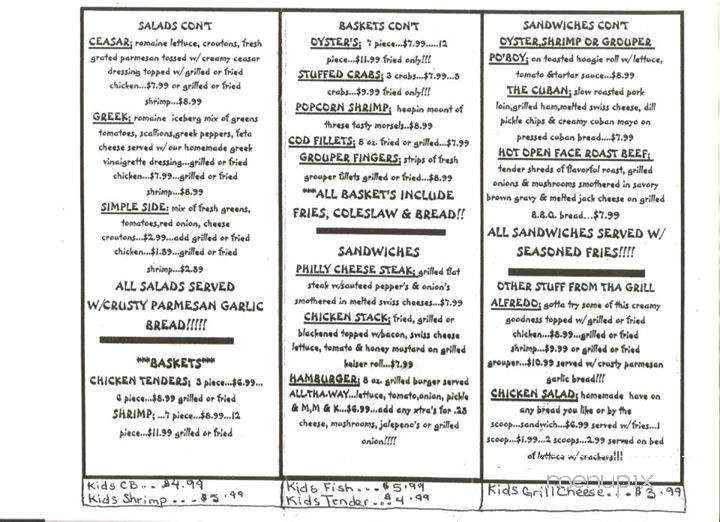 SALADS CON'T
CEASAR; romaine lettuce, croutons, fresh
grated parmesan tossed w/creamy ceasar
dressing topped w/grilled or fried
chicken...$7.99 or grilled or fried
shrimp...$8.99
GREEK; romaine iceberg mix of greens
tomatoes, scallions,greek peppers, feta
cheese served w/our homemade greek
vinaigrette dressing...grilled or fried
chicken...$7.99...grilled or fried
shrimp...$8.99
SIMPLE SIDE; mix of fresh greens,
tomatoes,red onion, cheese
croutons...$2.99...add grilled or fried
chicken...$1.89...grilled or fried
shrimp...$2.89
ALL SALADS SERVED
W/CRUSTY PARMESAN GARLIC
BREAD!!!!!
***BASKETS***
CHICKEN TENDERS; 3 piece...$6.99...
6 piece...$8.99 grilled or fried
SHRIMP; ...7 piece...$8.99...12
piece...$11.99 grilled or fried
Kids CB... $4.99
Kids Shrimp ... $5.99
BASKETS CON'T
OYSTER'S; 7 piece...$7.99.....12
piece...$11.99 fried only!!!
STUFFED CRABS; 3 crabs...$7.99...5
crabs...$9.99 fried only!!!
POPCORN SHRIMP; heapin mount of
threse tasty morsels..$8.99
COD FILLETS; 8 oz. fried or grilled...$7.99
GROUPER FINGERS; strips of fresh
grouper fillets grilled or fried...$8.99
***ALL BASKET'S INCLUDE
FRIES, COLESLAW & BREAD!!
SANDWICHES
PHILLY CHEESE STEAK; grilled flat
steak w/sauteed pepper's & onion's
smothered in melted swiss cheeses...$7.99
CHICKEN STACK; fried, grilled or
blackened topped w/bacon, swiss cheese
lettuce, tomato & honey mustard on grilled
keiser roll...$7.99
HAMBURGER; 8 oz. grilled burger served
ALL-THA-WAY...lettuce, tomato,onion, pickle
& M,M & K...$6.99...add any xtra's for .25
cheese, mushrooms, jalepeno's or grilled
onion!!!!
Kids Fish ... $5.99
Kids Tender ... $4.99
SANDWICHES CON'T
OYSTER,SHRIMP OR GROUPER
PO'BOY; on toasted hoagie roll w/lettuce,
tomato &tartar sauce...$8.99
THE CUBAN; slow roasted pork
loin,grilled ham,melted swiss cheese, dill
pickle chips & creamy cuban mayo on
pressed cuban bread...$7.99
HOT OPEN FACE ROAST BEEF;
tender shreds of flavorful roast, grilled
onions & mushrooms smothered in savory
brown gravy & melted jack cheese on grilled
B.B.Q. bread...$7.99
ALL SANDWICHES SERVED W/
SEASONED FRIES!!!!
OTHER STUFF FROM THA GRILL
ALFREDO; gotta try some of this creamy
goodness topped w/grilled or fried
chicken...$8.99...grilled or fried
shrimp...$9.99 or grilled or fried
grouper...$10.99 served w/ crusty parmesan
garlic bread!!!
CHICKEN SALAD; homemade have on
any bread you like or by the
scoop...sandwich...$6.99 served w/fries...1
scoop...$1.99...2 scoops...2.99 served on bed
of lettuce w/crackers!!!
Kids Grill Cheese... $3.99
menupix